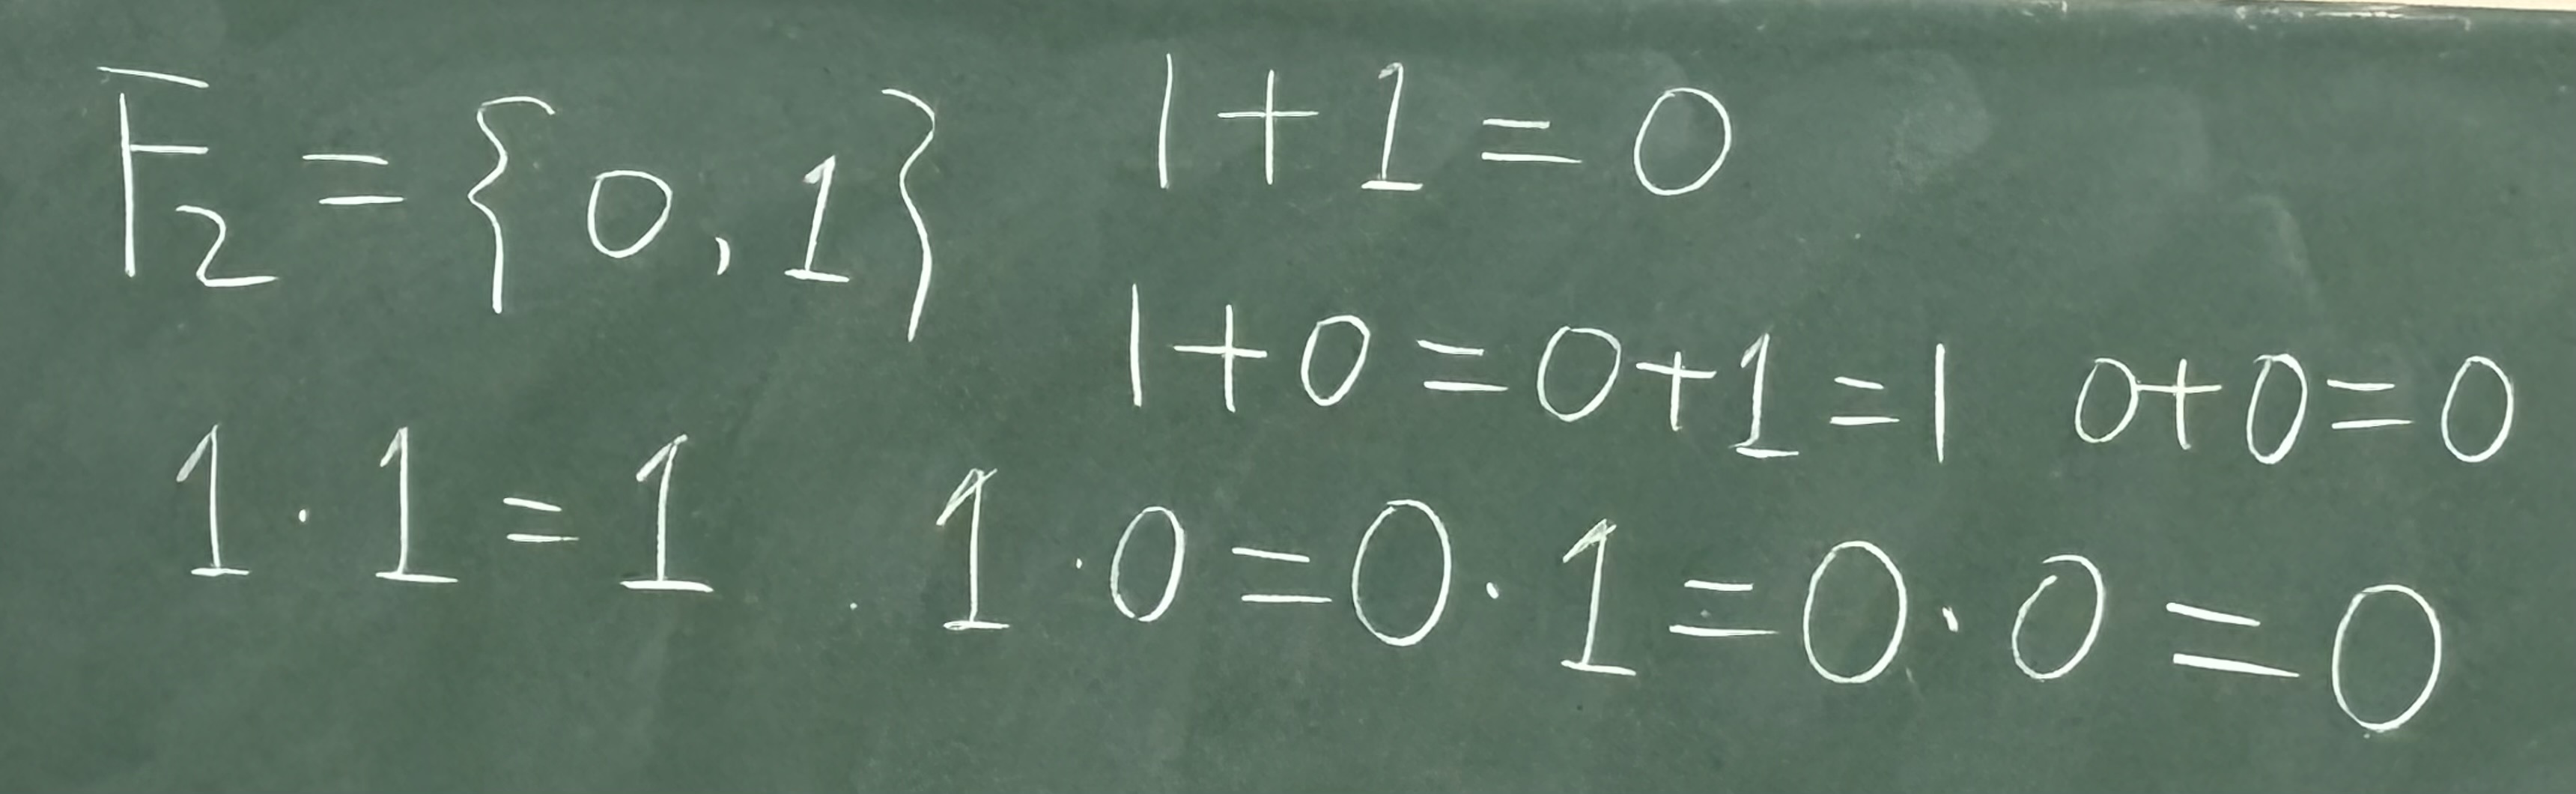 F₂ = {0, 1}
1+1=0
1+0=0+1=1 0+0=0
1·1=1 1·0=0·1=0·0=0